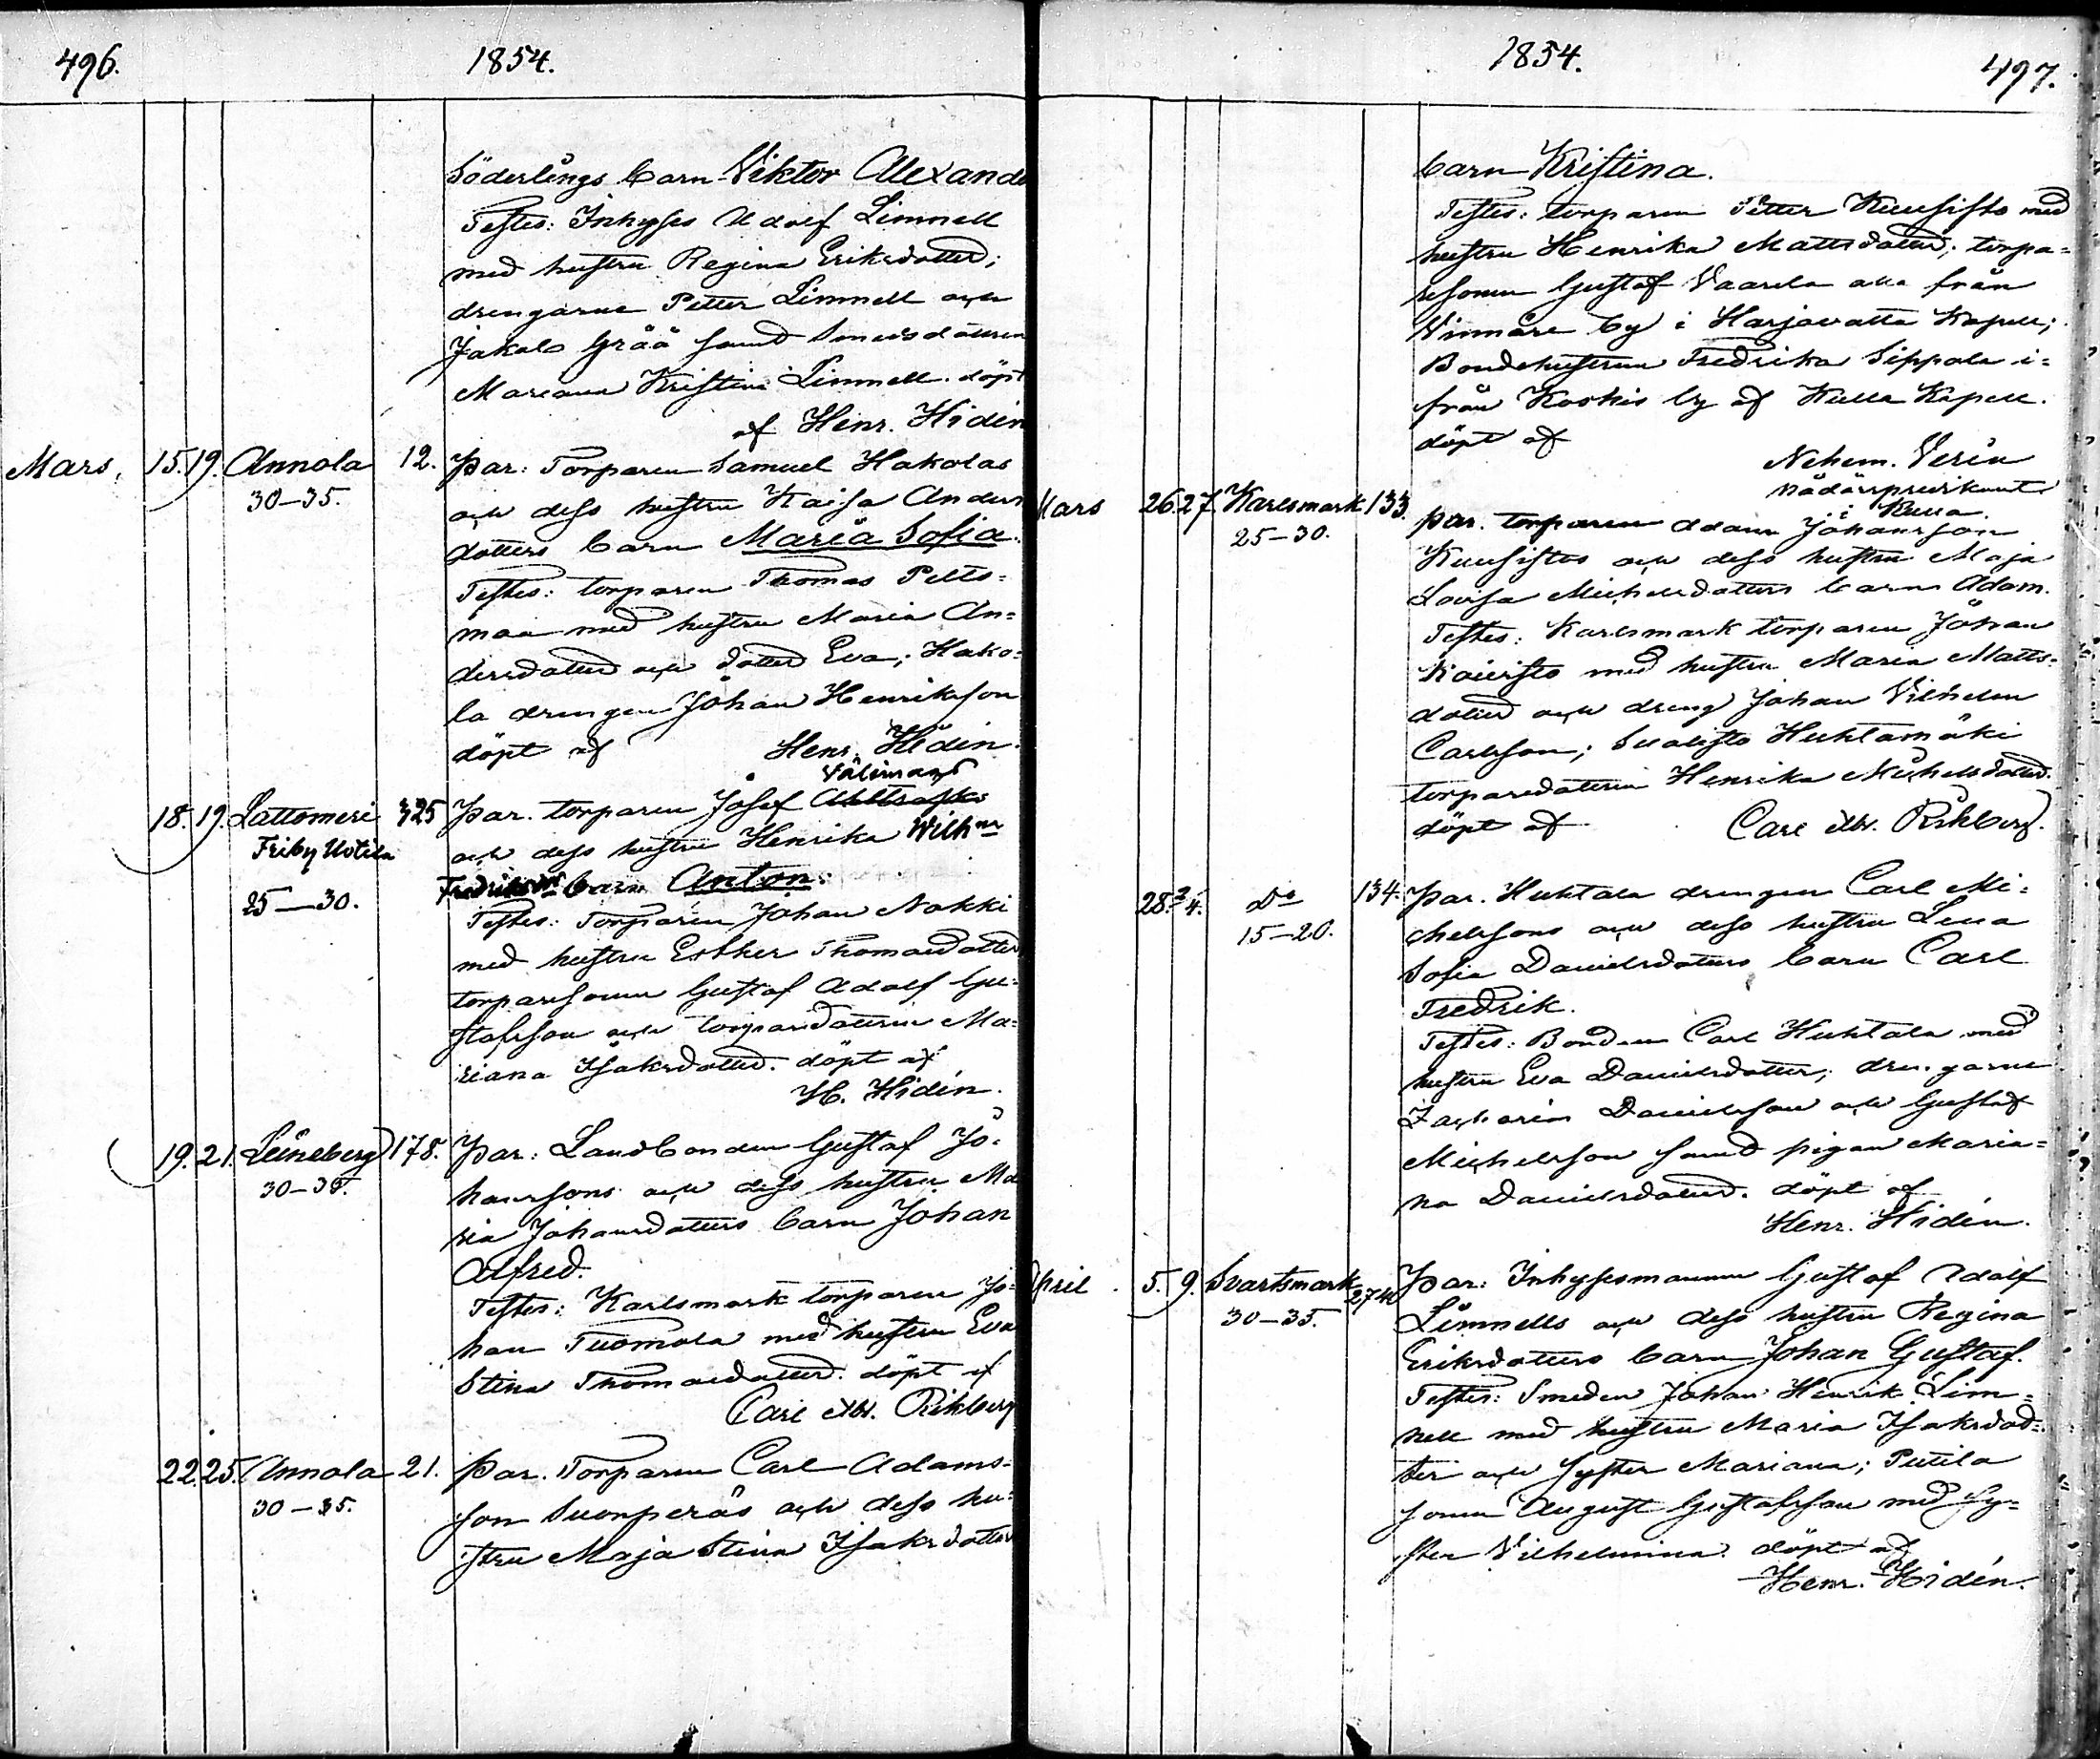 496.
1854.
Söderlings barn Viktor Alexande
Testes: Inhyses Adolf Limnell
med hustru Regina Eriksdotter;
drengarne Petter Limnell och
Jakob Gråå samt Smedsdottren
Mariana Kristina Limnell. döpt
af Henr. Hidén
Mars. 15. 19. Annola 12. Par: Torparen Samuel Hakolas
30–35. och dess hustru Kaisa Anders
dotters barn Maria Sofia.
Testes: torparen Thomas Pelto=
maa med hustru Maria An=
dersdotter och dotter Eva; Hako=
la drengen Johan Henriksson
döpt af Henr. Hidén.
Välimaas
18. 19. Lattomeri 325 Par. torparen Josef
Friby Uotila och dess hustru Henrika Wilhna
Fredriksdr barn Anton.
25–30. Testes: Torparen Johan Nokki
med hustru Esther Thomasdotter
torparesonen Gustaf Adolf Gu=
stafsson och torparedottren Ma=
riana Isaksdotter. döpt af
H. Hidén.
19. 21. Leineberg 178. Par: Landbonden Gustaf Jo=
30–35. hanssons och dess hustru Ma
ria Johansdotters barn Johan
Alfred.
Testes: Karlsmark torparen Jo=
han Tuomola med hustru Eva
Stina Thomasdotter. döpt af
Carl Rikberg
22. 25. Annola 21. Par. Torparen Carl Adams=
30–35. son Suonperäs och dess hu=
stru Maja Stina Isaksdotter
1854.
497.
barn Kristina.
Testes: torparen Petter Kuusisto med
hustru Henrika Mattsdotter; torpa=
resonen Gustaf Vaarela alla från
Vinnare by i Harjavalta Kapell;
Bondehustrun Fredrika Sippola i=
från Koskis by af Kulla Kapell.
döpt af
Nehem. Verin
nådårspredikant
i Kulla.
Mars 26. 27. Karlsmark 133. Par. torparen Adam Johansson
25–30. Kuusistos och dess hustru Maja
Lovisa Michelsdotters barn Adam.
Testes: Karlsmark torparen Johan
Koivisto med hustru Maria Matts=
dotter och dreng Johan Vilhelm
Carlsson; Suolisto Huhtamäki
torparedottren Henrika Michelsdotter.
döpt af Carl Rikberg.
28. 2/4. Do 134. Par. Huhtala drengen Carl Mi=
15–20. chelssons och dess hustru Lena
Sofia Danielsdotters barn Carl
Fredrik.
Testes: Bonden Carl Huhtala med
hustru Eva Danielsdotter; drengarne
Zacharias Danielsson och Gustaf
Michelsson samt pigan Maria=
na Danielsdotter. döpt af
Henr. Hidén.
April. 5. 9. Svartsmark 274 Par: Inhysesmannen Gustaf Adolf
30–35. Limnells och dess hustru Regina
Eriksdotters barn Johan Gustaf.
Testes: Smeden Johan Henrik Lim=
nell med hustru Maria Isaksdot=
ter och syster Mariana; Putila
sonen August Gustafsson med sy=
ster Vilhelmina. döpt af
Henr. Hidén.